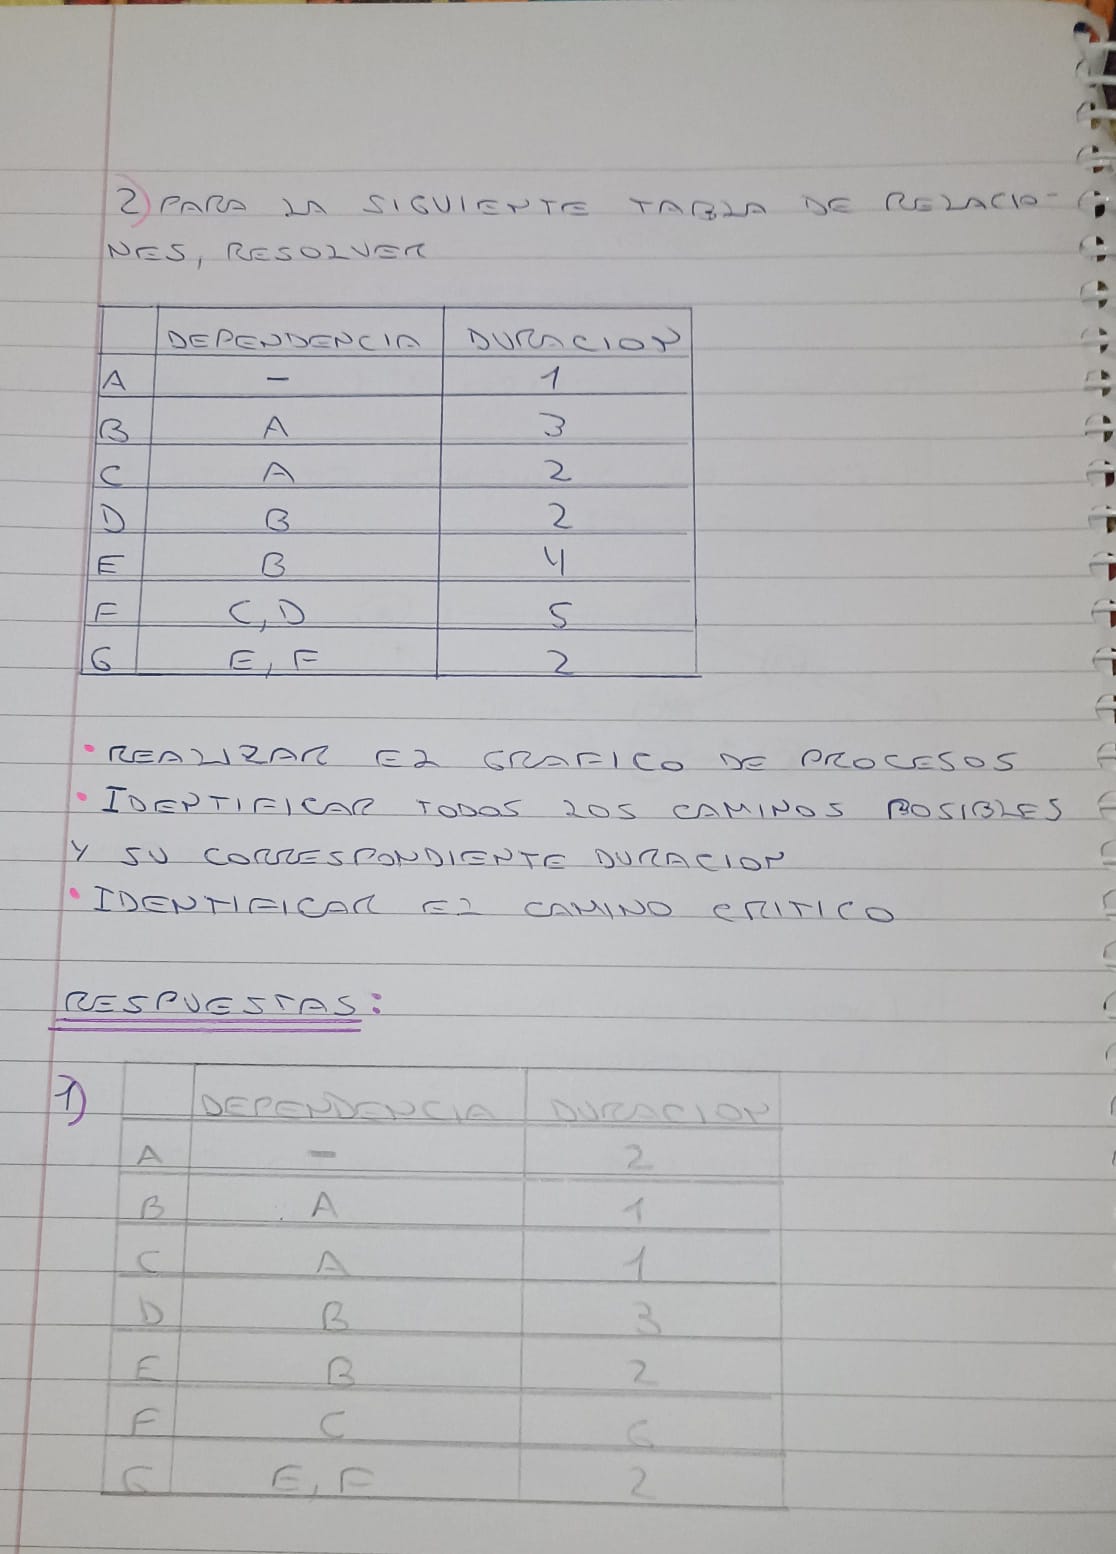 2) PARA LA SIGUIENTE TABLA DE RELACIO-
NES, RESOLVER
DEPENDENCIA DURACION
A - 1
B A 3
C A 2
D B 2
E B 4
F C, D 5
G E, F 2
• REALIZAR EL GRAFICO DE PROCESOS
• IDENTIFICAR TODOS LOS CAMINOS POSIBLES
Y SU CORRESPONDIENTE DURACION
• IDENTIFICAR EL CAMINO CRITICO
RESPUESTAS:
1)
DEPENDENCIA DURACION
A - 2
B A 1
C A 1
D B 3
E B 2
F C 6
G E, F 2